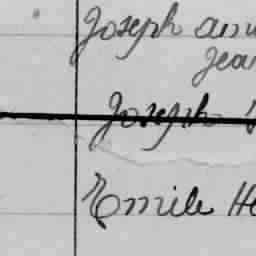 Joseph
Jean
Joseph
Emile He